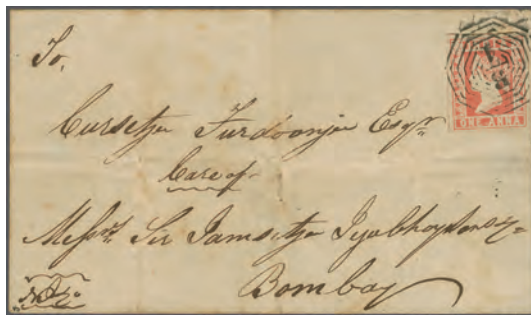 To,
Cursetjee Furdoonjee Esqr.
Care of
Messrs Sir Jamsetjee Jejeebhoy Sons &
Bombay
ONE ANNA